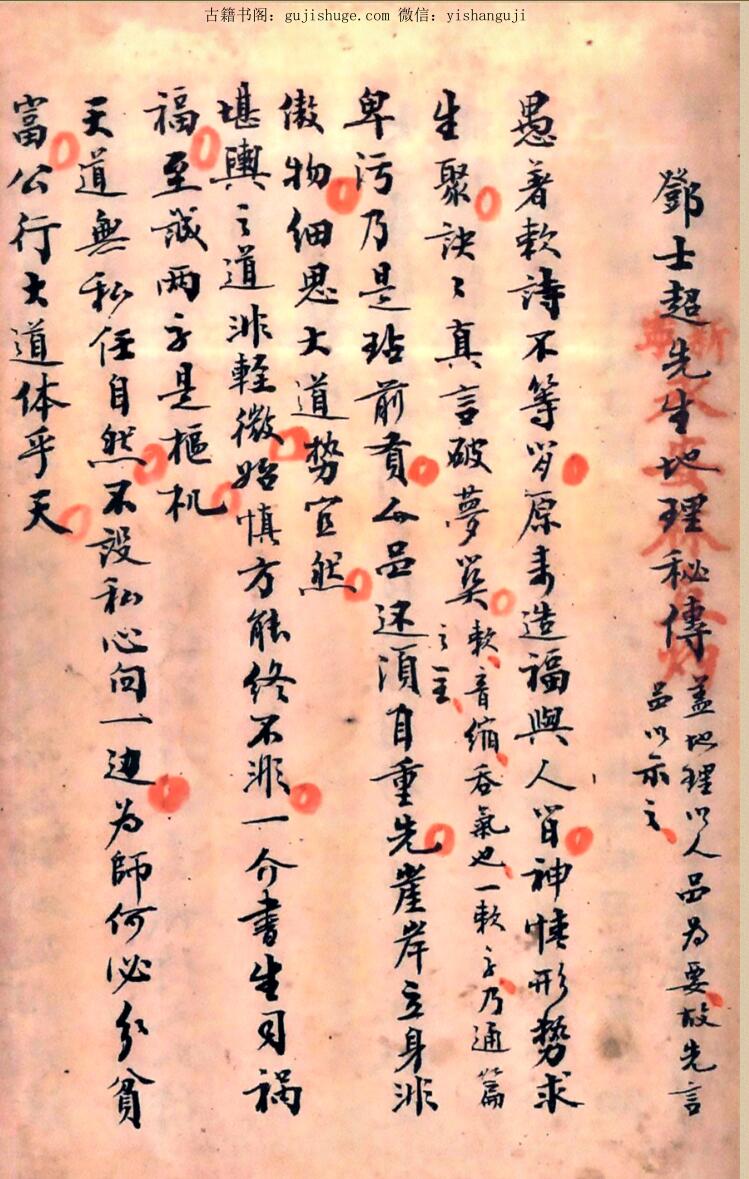 古籍书阁：gujishuge.com 微信：yishanguji
鄧士超先生地理秘傳 蓋地理以人品为要故先言
品以示之
愚著欶詩不等閒原來造福與人皆神情形勢求
生聚訣訣真言破夢奚 欶音缩吞氣也一欶字乃通篇
之主
卑污乃是玷前賢人品还須自重先崖岸立身非
傲物细思大道势宜然
堪輿之道非輕微始慎方能终不非一介書生司祸
福至誠两字是樞机
天道無私任自然不設私心向一边为師何必分貧
富公行大道体乎天